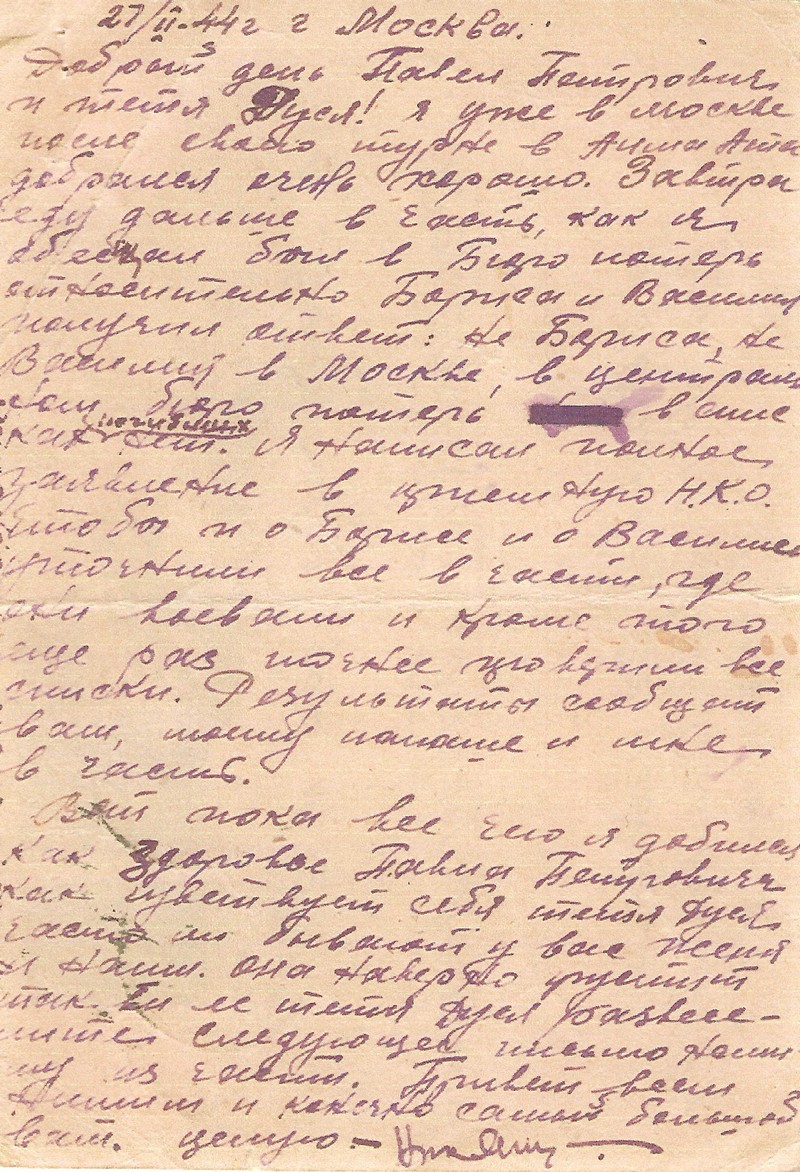 27/II-44г г Москва.
Добрый день Павел Петрович
и тетя Дуся! Я уже в Москве
после своего турне в Алма Ата
добрался очень хорошо. Завтра
еду дальше в часть, как я
обещал был в Бюро потерь
относительно Бориса и Василия
получил ответ: не Бориса, не
Василия в Москве, в централь
ном бюро потерь в спис
ках погибших нет. Я написал полное
заявление в НКО.
чтобы и о Борисе и о Василии
уточнили все в части, где
они воевали и кроме того
еще раз точнее проверили все
списки. Результаты сообщат
вам, моему папаше и мне
в часть.
Вот пока все чего я добился
как здоровье Павла Петровича
как чувствует себя тетя Дуся
часто ли бывают у вас Женя
и она наверно грустит
так Вы ее тетя Дуся развесе-
лите следующее письмо напи-
шу из части. Привет всем
нашим и конечно самый большой
вам. целую -